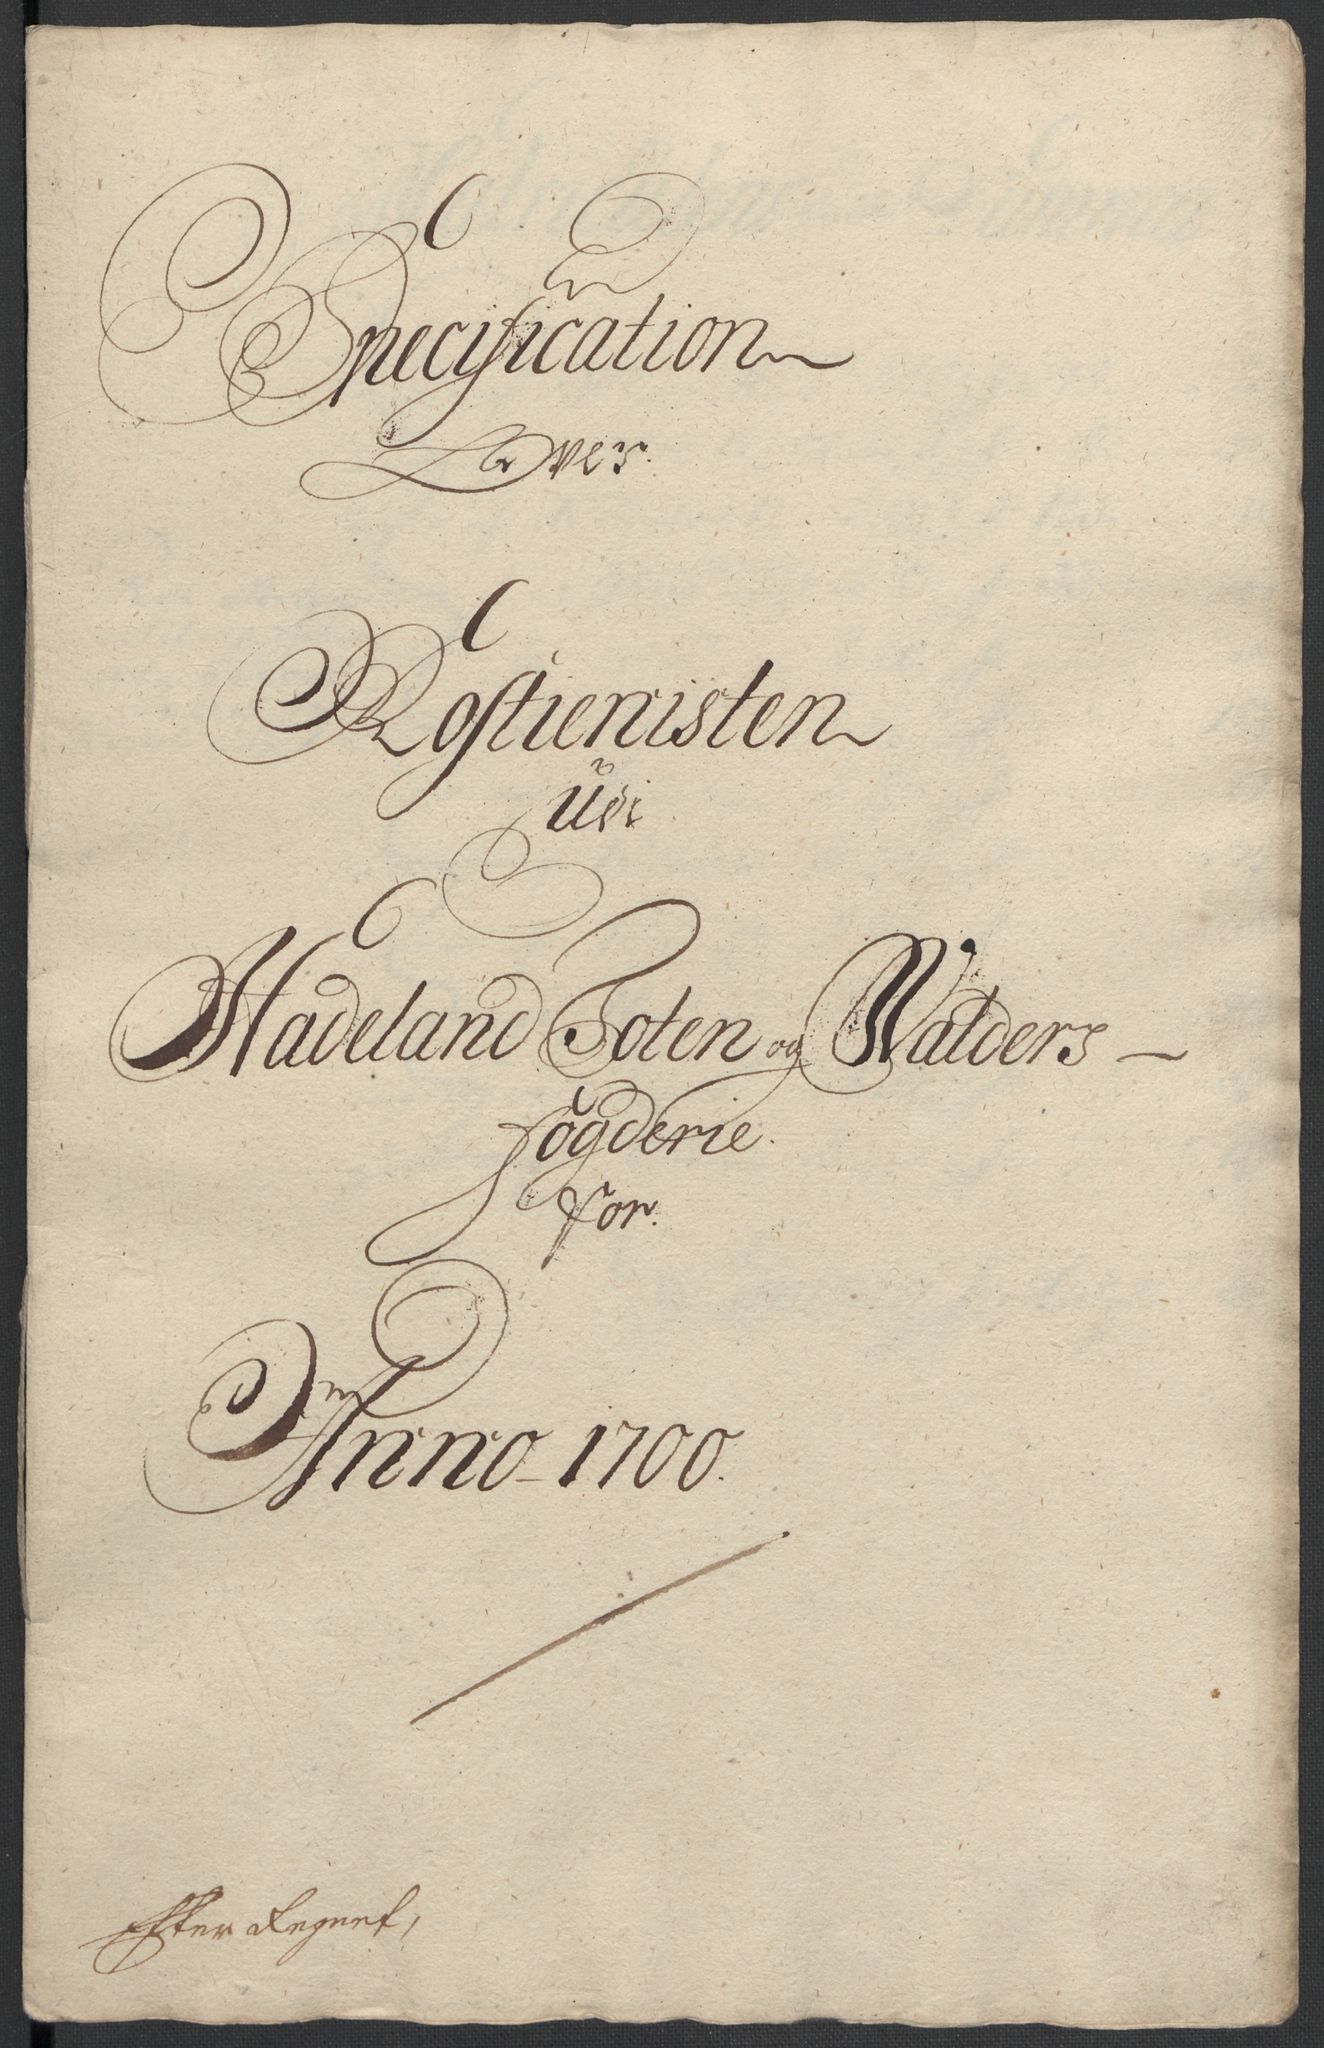 Specification
Over
Rostienisten
udi
Hadeland Toten og Walders
fögderie.
for.
Anno 1700.
Efter Regnet,